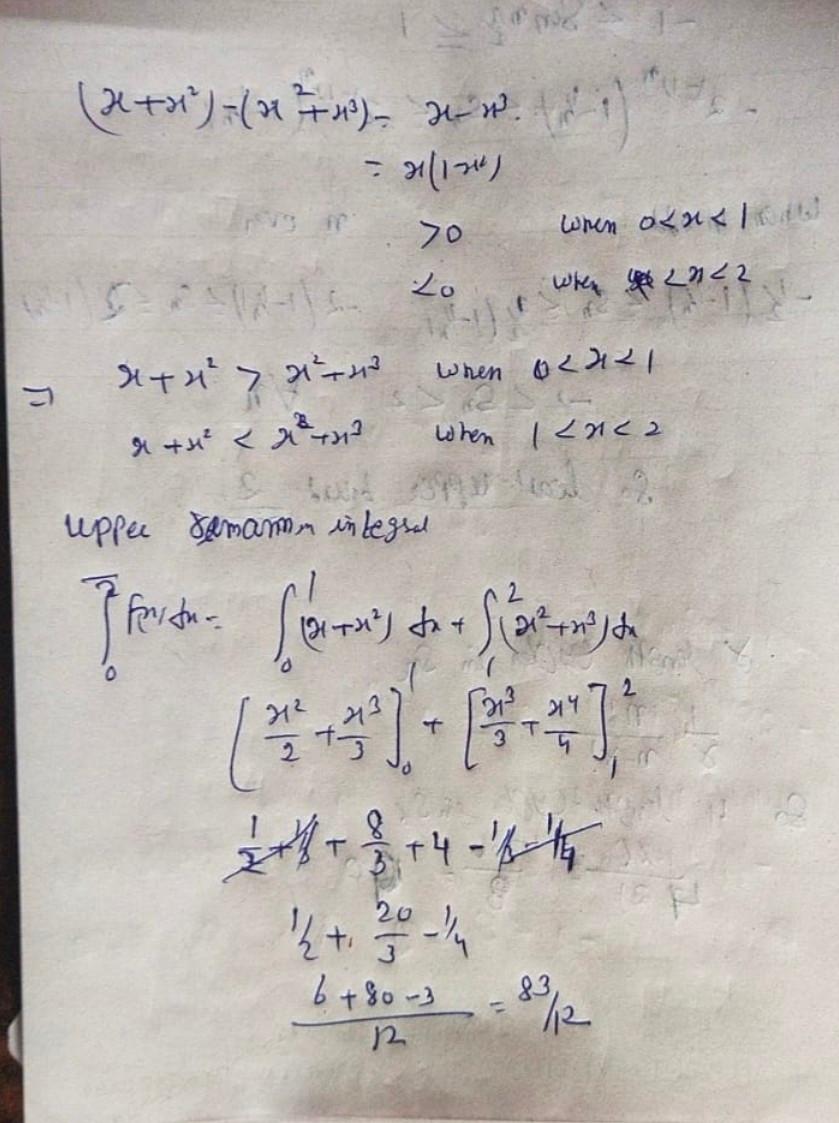 (x+x²)-(x²+x³) = x-x³.
= x(1-x²)
>0 when 0<x<1
<0 when <x<2
⇒ x+x² > x²+x³ when 0<x<1
x+x² < x²+x³ when 1<x<2
Upper integral
∫̅₀² f(x) dx = ∫₀¹ (x+x²) dx + ∫₁² (x²+x³) dx
[x²/2 + x³/3]₀¹ + [x³/3 + x⁴/4]₁²
1/2 + 1/3 + 8/3 + 4 - 1/3 - 1/4
1/2 + 20/3 - 1/4
(6+80-3)/12 = 83/12